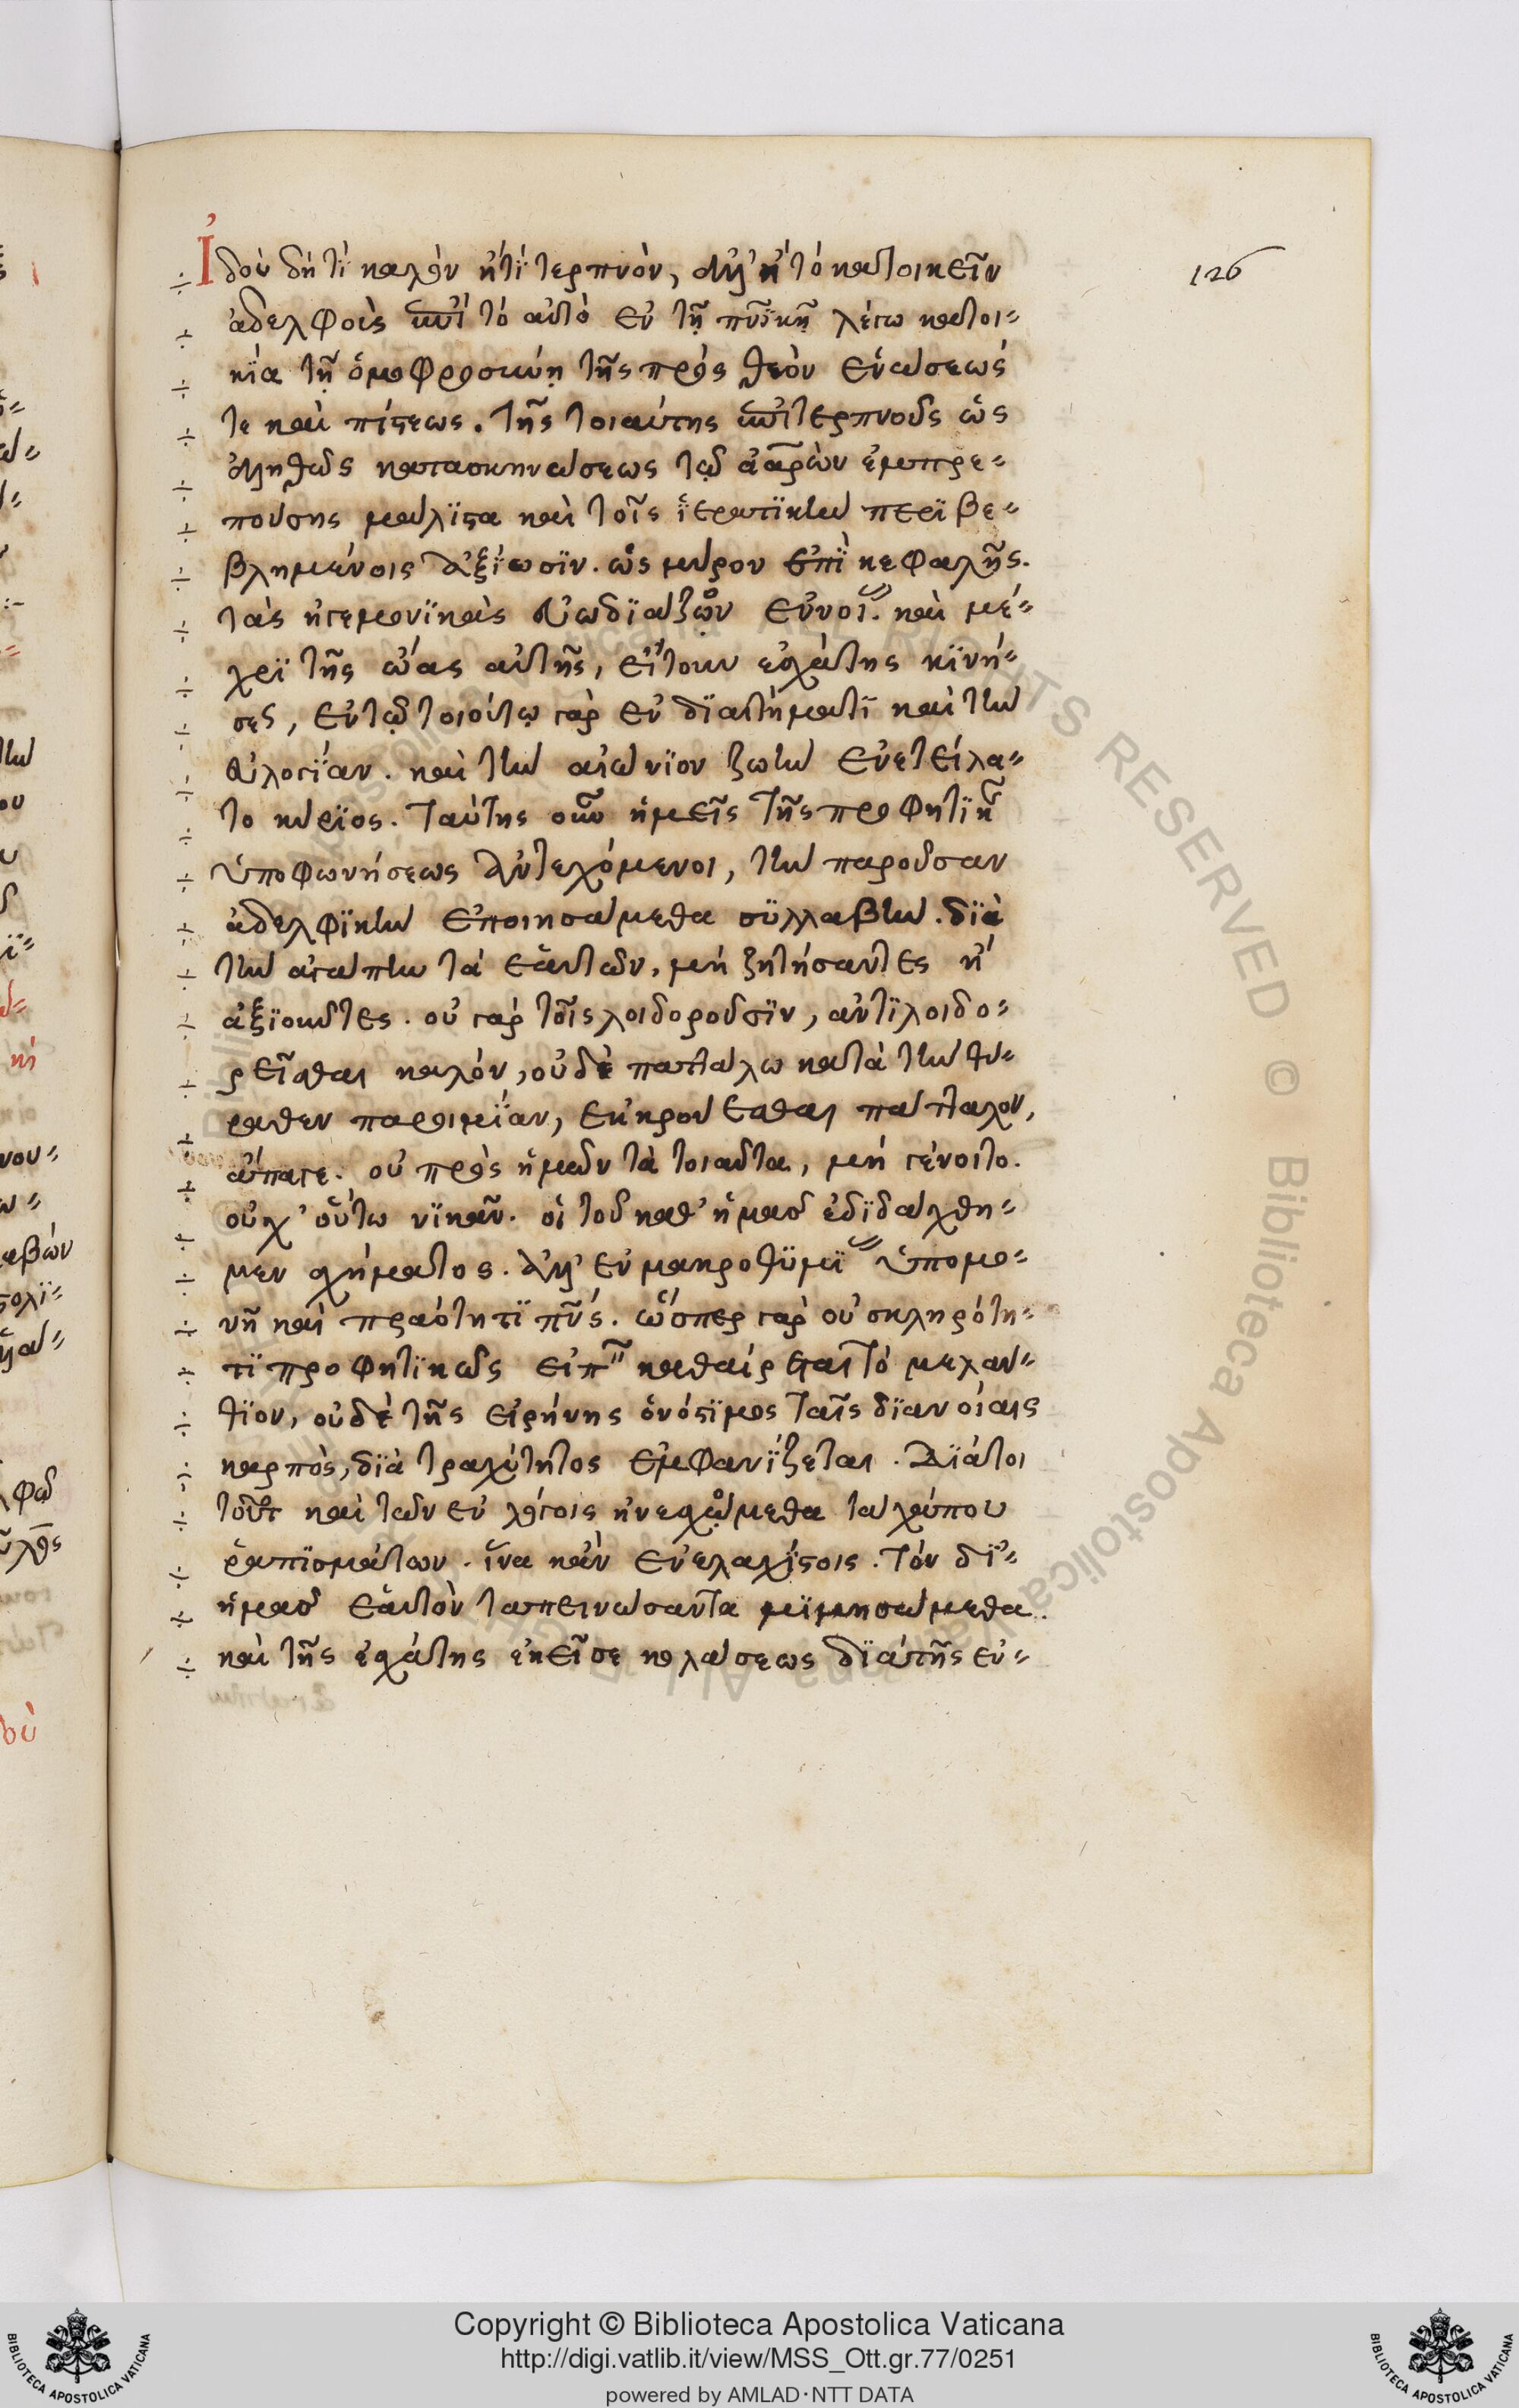 126
Ἰδοὺ δή τϊ καλὸν ἢ τί τερπνὸν, ἀλλ' ἢ τὸ κατοικεῖν
ἀδελφοὺς ἐπὶ τὸ αὐτὸ ἐν τῇ πνϊκῇ λέγω κατοι-
κϊα τῇ ὁμοφροσύνῃ τῆς πρὸς θεὸν ἑνώσεώς
τε καὶ πίστεως. τῆς τοιαύτης ἐπιτερπνοῦς ὡς
ἀληθῶς κατασκηνώσεως τῷ ἀαρὼν ἐμπρε-
πούσης μάλϊστα καὶ τοῖς ϊερατϊκὴν περϊβε-
βλημένοις ἀξίωσϊν. ὡς μύρον ἐπϊ κεφαλῆς.
τὰς ἡγεμονϊκὰς εὐωδϊάζον εὐνοί. καὶ μέ-
χρϊ τῆς ὤας αὐτῆς, εἴτουν ἐσχάτης κϊνή-
σες, ἐν τῷ τοιούτῳ γὰρ ἐν δϊαστήματϊ καὶ τὴν
εὐλογίαν. καὶ τὴν αἰώνϊον ζωὴν ἐνετείλα-
το κύρϊος. ταύτης οὖν ἡμεῖς τῆς προφητϊκ
ὑποφωνήσεως ἀντεχόμενοι, τὴν παροῦσαν
ἀδελφϊκὴν ἐποιησάμεθα σϋλλαβὴν. δϊὰ
τὴν ἀγάπην τὰ ἑαυτῶν, μὴ ζητήσαντες ἢ
ἀξϊοῦντες. οὐ γὰρ τοῖς λοιδοροῦσϊν, ἀντϊλοιδο-
ρεῖσθαι καλόν, οὐδὲ παττάλω κατὰ τὴν θύ-
ραθεν παροιμϊαν, ἐκκρούεσθαι πάτταλον,
ἄπαγε. οὐ πρὸς ἡμῶν τὰ τοιαῦτα, μὴ γένοιτο.
οὐχ' οὕτω νϊκᾶν. οἱ τοῦ καθ' ἡμᾶς ἐδϊδάχθη-
μεν σχήματος. ἀλλ' ἐν μακροθϋμϊ ὑπομο-
νῇ καὶ πραότητϊ πνς. ὥσπερ γὰρ οὐ σκληρότη-
τϊ προφητϊκῶς εἰπ καθαίρεται τὸ μελάν-
θϊον, οὐδὲ τῆς εἰρήνης ὁνόσϊμος ταῖς δϊανοίαις
καρπὸς, δϊὰ τραχύτητος ἐμφανϊζεται. Δϊάτοι
τοῦτο καὶ τῶν ἐν λόγοις ἠνεσχόμεθα τάχα που
ῥαπϊσμάτων. ἵνα κἂν ἐν ἐλαχϊστοις. τὸν δι'
ἡμᾶς ἑαυτὸν ταπεινώσαντα μϊμησώμεθα.
καὶ τῆς ἐσχάτης ἐκεῖσε κολάσεως δϊὰ τῆς ἐν-
Copyright © Biblioteca Apostolica Vaticana
http://digi.vatlib.it/view/MSS_Ott.gr.77/0251
powered by AMLAD·NTT DATA